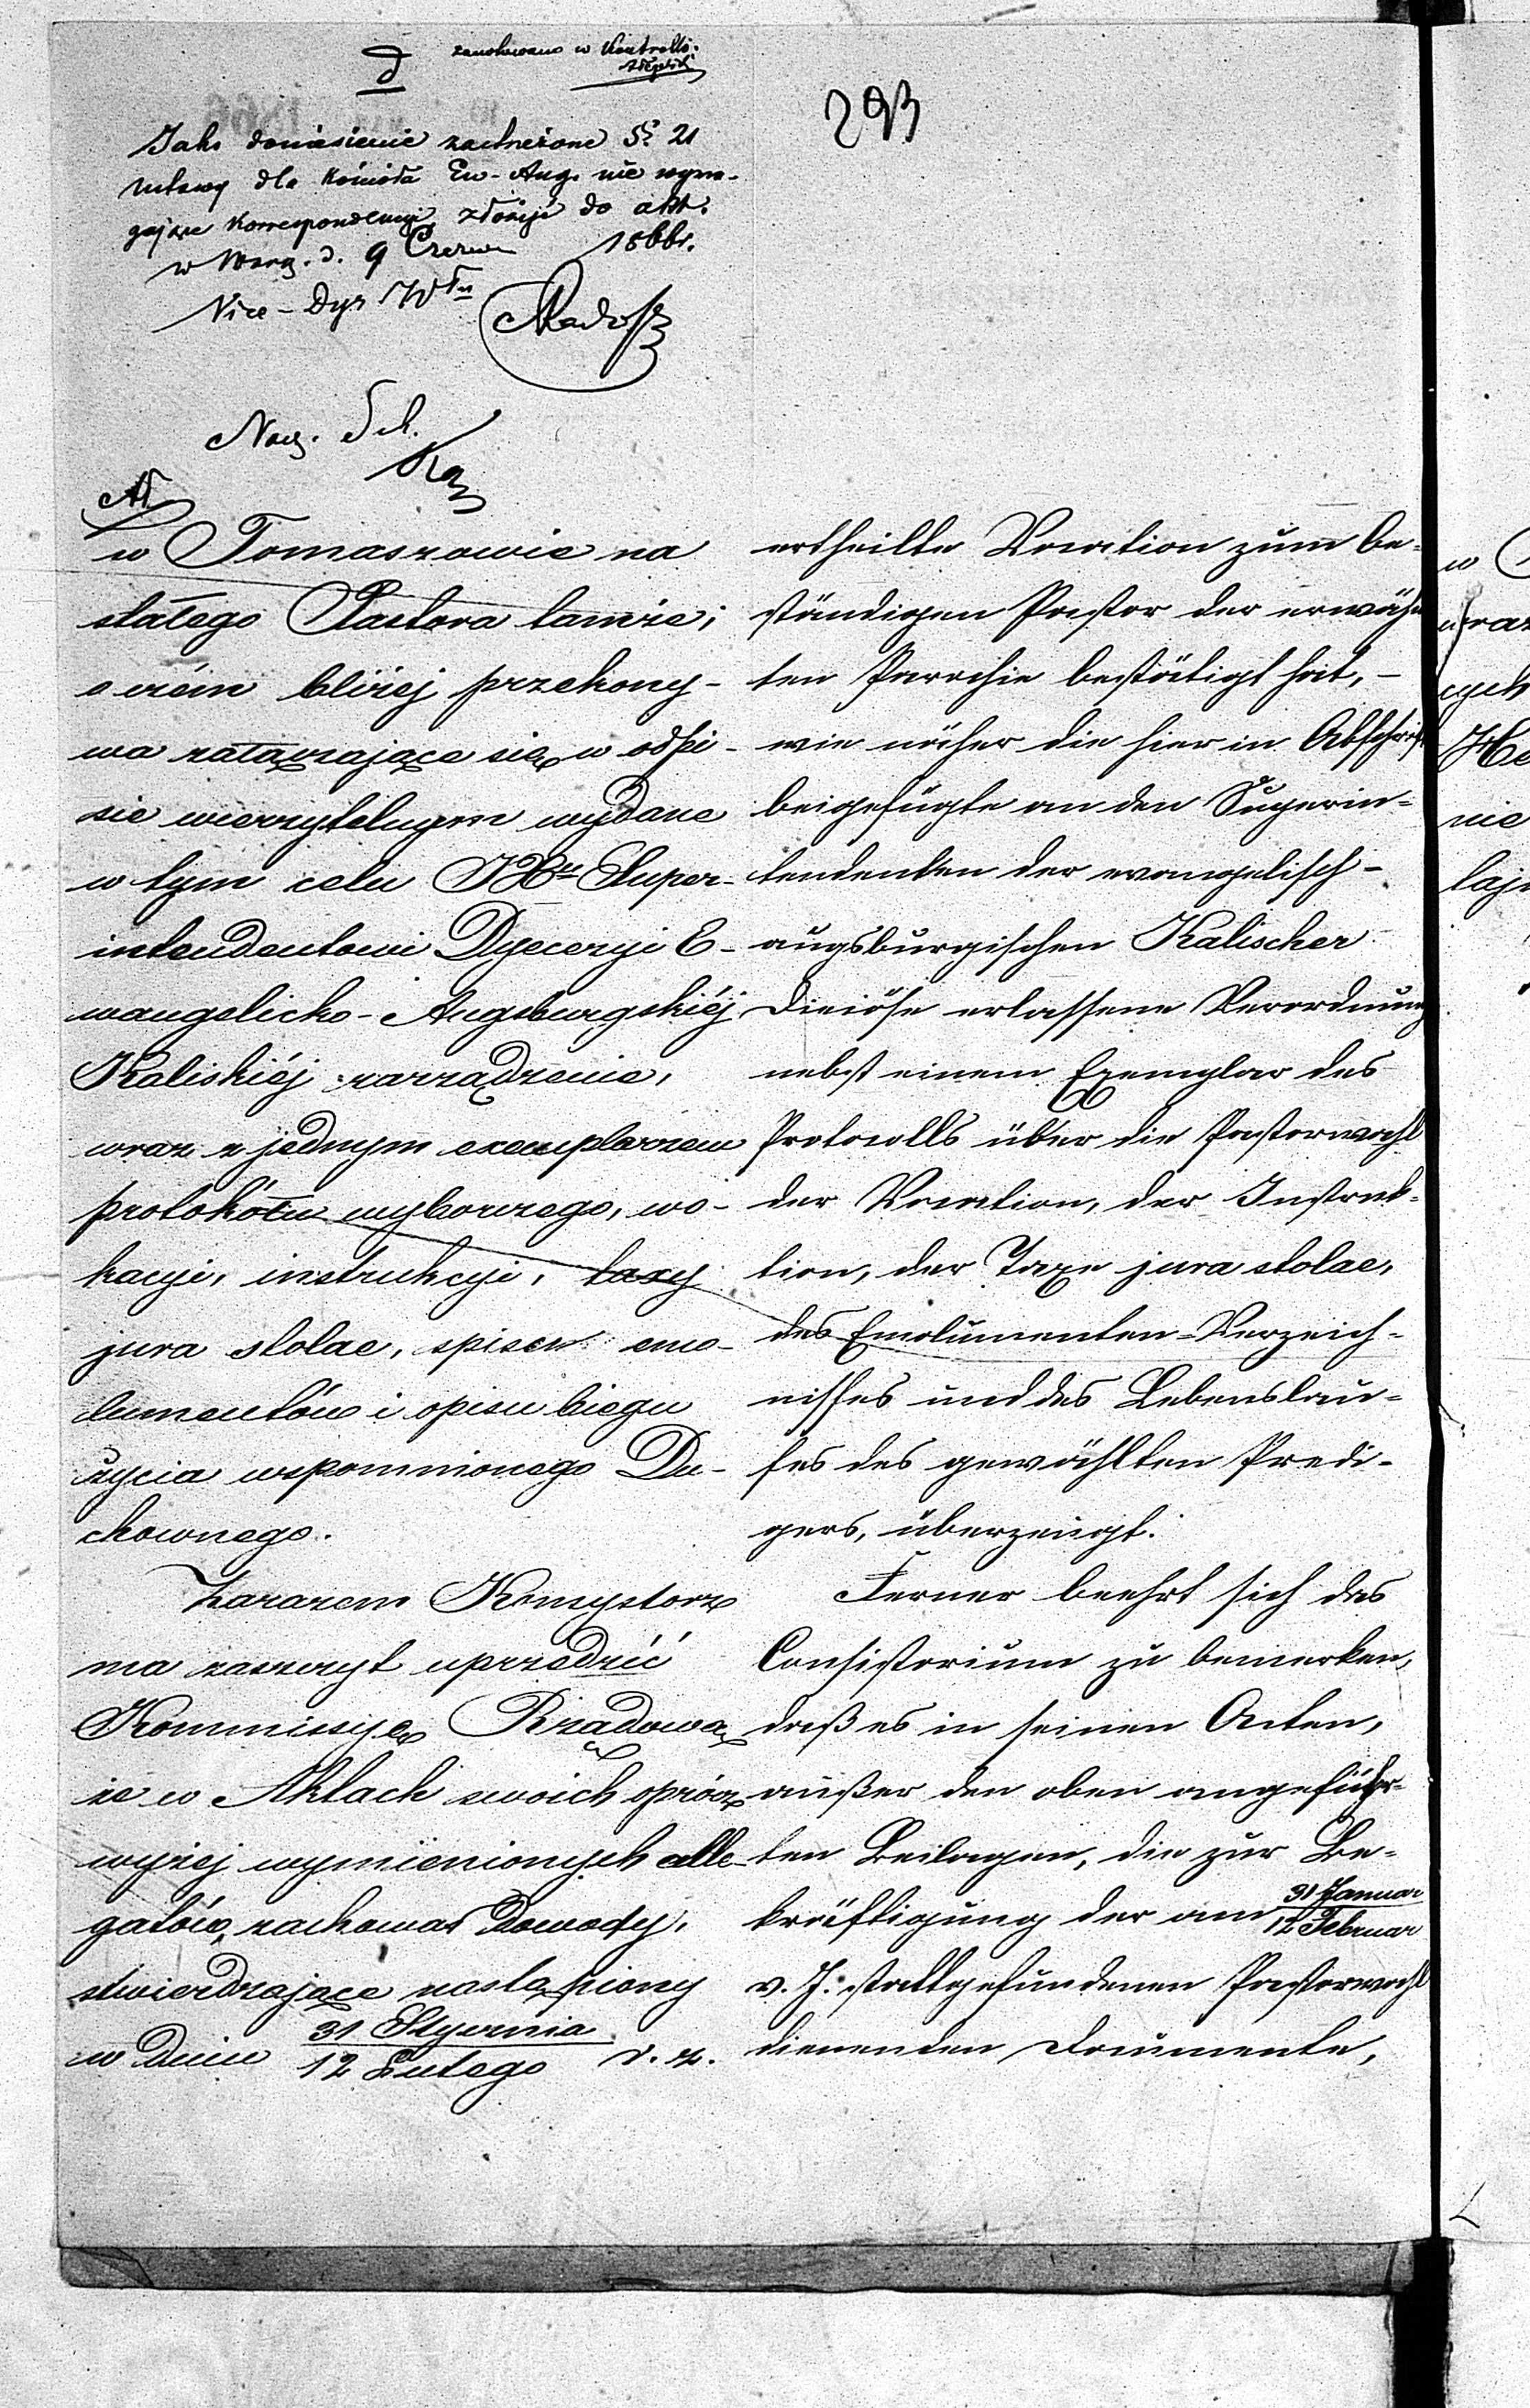 d
zanotowano w Kontrolli.
293
Jako doniesienie zastrzeżone §: 21
ustawy dla Kościoła Ew-Aug. nie wyma-
gające korrespondencyi, złożyć do akt.
w Warsz. d. 9 Czerw 1866 r.
Vice-Dyr
Nacz. Sek.
w Tomaszowie na
stałego Pastora tamże;
o czém bliżej przekony-
wa załączające się w odpi-
sie wierzytelnym wydane
w tym celu JX Super-
intendentowi Dyecezyi E-
wangelicko-Augsburgskiéj
Kaliskiéj zarządzenie,
wraz z jednym exemplarzem
protokółu wyborczego, wo-
kacyi, instrukcyi, taxy
jura stolae, spisu emo-
lumentów i opisu biegu
życia wspomnionego Du-
chownego.
Zarazem Konsystorz
ma zaszczyt uprzedzić
Kommissyę Rządową
że w Aktach swoich oprócz
wyżej wymienionych alle-
gatów, zachował Dowody,
stwierdzające nastąpiony
w Dniu 31 Stycznia / 12 Lutego r. z.
ertheilte Vocation zum be-
ständigen Pastor der erwähn
ten Parochie bestätigt hat, -
wie näher die hier in Abschrift
beigefügte an den Superin-
tendenten der evangelisch-
augsburgischen Kalischer
Dieiöse erlassene Verordnung
nebst einem Exemplar des
Protocolls über die Pastorwahl
der Vocation, der Instruk-
tion, der Taxe jura stolae,
des Emolumenten-Verzeich-
nisses und des Lebenslau-
fes des gewählten Predi-
gers, überzeugt.
Ferner beehrt sich das
Consistorium zu bemerken,
daß es in seinen Acten,
außer den oben angeführ-
ten Beilagen, die zur Be-
kräftigung der am 31 Januar / 12 Februar
v. J. stattgefundenen Pastorwahl
dienenden Documente,